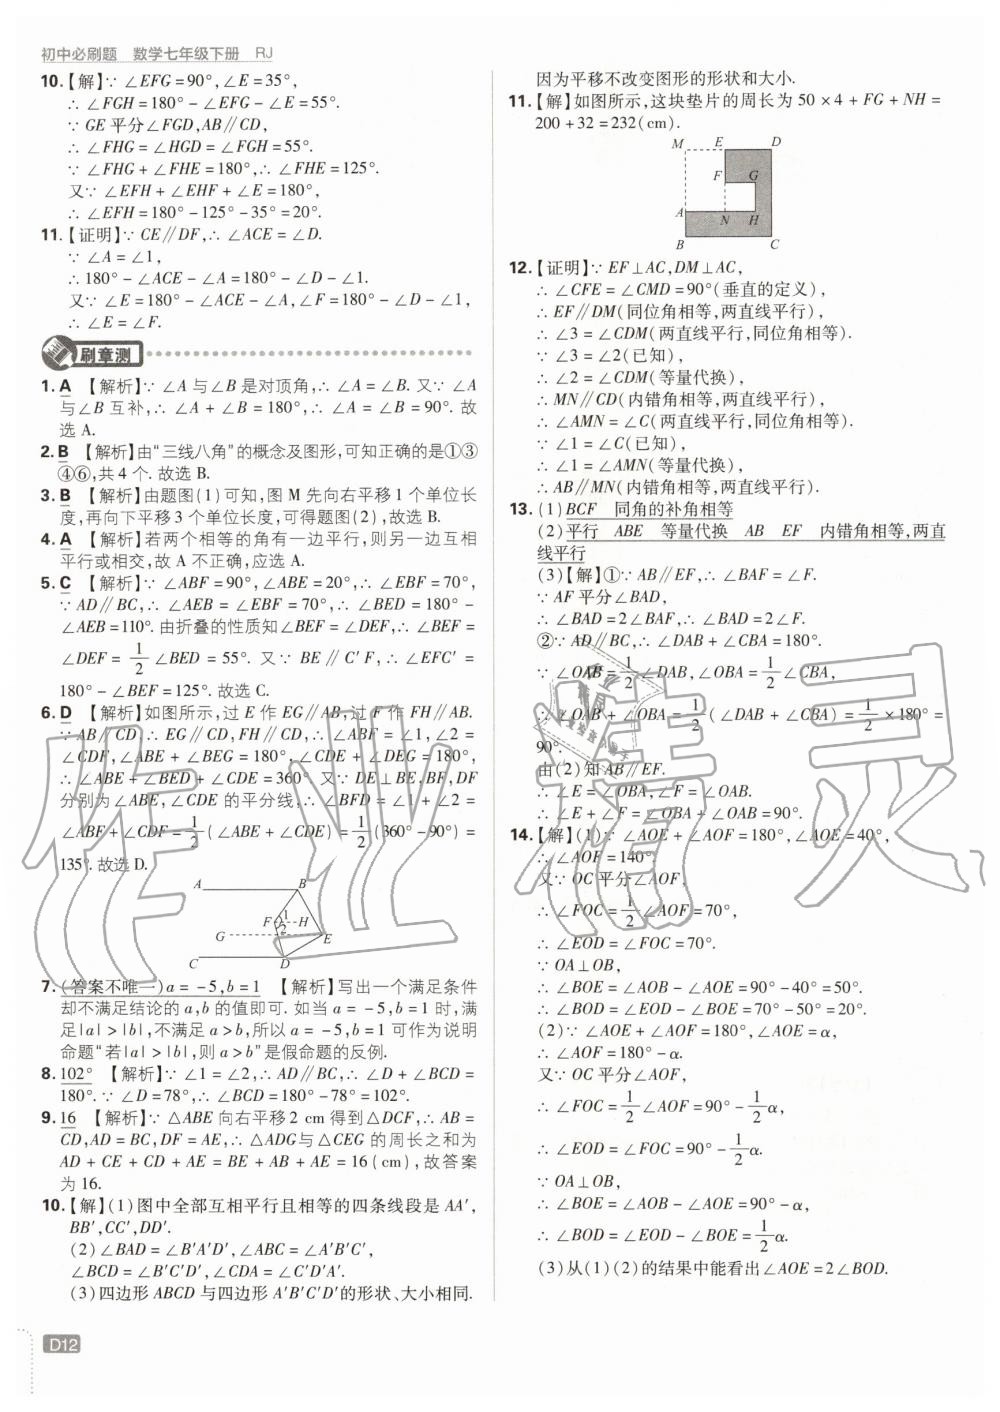 初中必刷题 数学七年级下册 RJ
10.【解】∵ ∠EFG = 90°,∠E = 35°,
∴ ∠FGH = 180° - ∠EFG - ∠E = 55°.
∵ GE 平分∠FGD,AB∥CD,
∴ ∠FHG = ∠HGD = ∠FGH = 55°.
∵ ∠FHG + ∠FHE = 180°,∴ ∠FHE = 125°.
又∵ ∠EFH + ∠EHF + ∠E = 180°,
∴ ∠EFH = 180° - 125° - 35° = 20°.
11.【证明】∵ CE∥DF,∴ ∠ACE = ∠D.
∵ ∠A = ∠1,
∴ 180° - ∠ACE - ∠A = 180° - ∠D - ∠1.
又∵ ∠E = 180° - ∠ACE - ∠A,∠F = 180° - ∠D - ∠1,
∴ ∠E = ∠F.
刷章测
1. A 【解析】∵ ∠A 与∠B 是对顶角,∴ ∠A = ∠B. 又∵ ∠A
与∠B 互补,∴ ∠A + ∠B = 180°,∴ ∠A = ∠B = 90°. 故
选 A.
2. B 【解析】由“三线八角”的概念及图形,可知正确的是①③
④⑥,共 4 个. 故选 B.
3. B 【解析】由题图(1)可知,图 M 先向右平移 1 个单位长
度,再向下平移 3 个单位长度,可得题图(2),故选 B.
4. A 【解析】若两个相等的角有一边平行,则另一边互相
平行或相交,故 A 不正确,应选 A.
5. C 【解析】∵ ∠ABF = 90°,∠ABE = 20°,∴ ∠EBF = 70°,
∵ AD∥BC,∴ ∠AEB = ∠EBF = 70°,∴ ∠BED = 180° -
∠AEB = 110°. 由折叠的性质知∠BEF = ∠DEF,∴ ∠BEF =
∠DEF = 1/2 ∠BED = 55°. 又∵ BE∥C′F,∴ ∠EFC′ =
180° - ∠BEF = 125°. 故选 C.
6. D 【解析】如图所示,过 E 作 EG∥AB,过 F 作 FH∥AB.
∵ AB∥CD,∴ EG∥CD,FH∥CD,∴ ∠ABF = ∠1,∠2 =
∠CDF,∠ABE + ∠BEG = 180°,∠CDE + ∠DEG = 180°,
∴ ∠ABE + ∠BED + ∠CDE = 360°. 又∵ DE⊥BE,BF,DF
分别为∠ABE,∠CDE 的平分线,∴ ∠BFD = ∠1 + ∠2 =
∠ABF + ∠CDF = 1/2 (∠ABE + ∠CDE) = 1/2 (360° - 90°) =
135°. 故选 D.
A B
F 1 H
2
G E
C D
7. (答案不唯一) a = -5,b = 1 【解析】写出一个满足条件
却不满足结论的 a,b 的值即可. 如当 a = -5,b = 1 时,满
足|a| > |b|,不满足 a > b,所以 a = -5,b = 1 可作为说明
命题“若|a| > |b|,则 a > b”是假命题的反例.
8. 102° 【解析】∵ ∠1 = ∠2,∴ AD∥BC,∴ ∠D + ∠BCD =
180°. ∵ ∠D = 78°,∴ ∠BCD = 180° - 78° = 102°.
9. 16 【解析】∵ △ABE 向右平移 2 cm 得到△DCF,∴ AB =
CD,AD = BC,DF = AE,∴ △ADG 与△CEG 的周长之和为
AD + CE + CD + AE = BE + AB + AE = 16(cm),故答案
为 16.
10.【解】(1)图中全部互相平行且相等的四条线段是 AA′,
BB′,CC′,DD′.
(2)∠BAD = ∠B′A′D′,∠ABC = ∠A′B′C′,
∠BCD = ∠B′C′D′,∠CDA = ∠C′D′A′.
(3)四边形 ABCD 与四边形 A′B′C′D′的形状、大小相同.
D12
因为平移不改变图形的形状和大小.
11.【解】如图所示,这块垫片的周长为 50 × 4 + FG + NH =
200 + 32 = 232(cm).
M E D
F G
A N H
B C
12.【证明】∵ EF⊥AC,DM⊥AC,
∴ ∠CFE = ∠CMD = 90°(垂直的定义),
∴ EF∥DM(同位角相等,两直线平行),
∴ ∠3 = ∠CDM(两直线平行,同位角相等).
∵ ∠3 = ∠2(已知),
∴ ∠2 = ∠CDM(等量代换),
∴ MN∥CD(内错角相等,两直线平行),
∴ ∠AMN = ∠C(两直线平行,同位角相等).
∵ ∠1 = ∠C(已知),
∴ ∠1 = ∠AMN(等量代换),
∴ AB∥MN(内错角相等,两直线平行).
13. (1) BCF 同角的补角相等
(2) 平行 ABE 等量代换 AB EF 内错角相等,两直
线平行
(3)【解】①∵ AB∥EF,∴ ∠BAF = ∠F.
∵ AF 平分∠BAD,
∴ ∠BAD = 2∠BAF,∴ ∠BAD = 2∠F.
②∵ AD∥BC,∴ ∠DAB + ∠CBA = 180°.
∵ ∠OAB = 1/2 ∠DAB,∠OBA = 1/2 ∠CBA,
∴ ∠OAB + ∠OBA = 1/2 (∠DAB + ∠CBA) = 1/2 × 180° =
90°.
由(2)知 AB∥EF.
∴ ∠E = ∠OBA,∠F = ∠OAB.
∴ ∠E + ∠F = ∠OBA + ∠OAB = 90°.
14.【解】(1)∵ ∠AOE + ∠AOF = 180°,∠AOE = 40°,
∴ ∠AOF = 140°.
又∵ OC 平分∠AOF,
∴ ∠FOC = 1/2 ∠AOF = 70°,
∴ ∠EOD = ∠FOC = 70°.
∵ OA⊥OB,
∴ ∠BOE = ∠AOB - ∠AOE = 90° - 40° = 50°.
∴ ∠BOD = ∠EOD - ∠BOE = 70° - 50° = 20°.
(2)∵ ∠AOE + ∠AOF = 180°,∠AOE = α,
∴ ∠AOF = 180° - α.
又∵ OC 平分∠AOF,
∴ ∠FOC = 1/2 ∠AOF = 90° - 1/2 α,
∴ ∠EOD = ∠FOC = 90° - 1/2 α.
∵ OA⊥OB,
∴ ∠BOE = ∠AOB - ∠AOE = 90° - α,
∴ ∠BOD = ∠EOD - ∠BOE = 1/2 α.
(3)从(1)(2)的结果中能看出∠AOE = 2∠BOD.
作业精灵